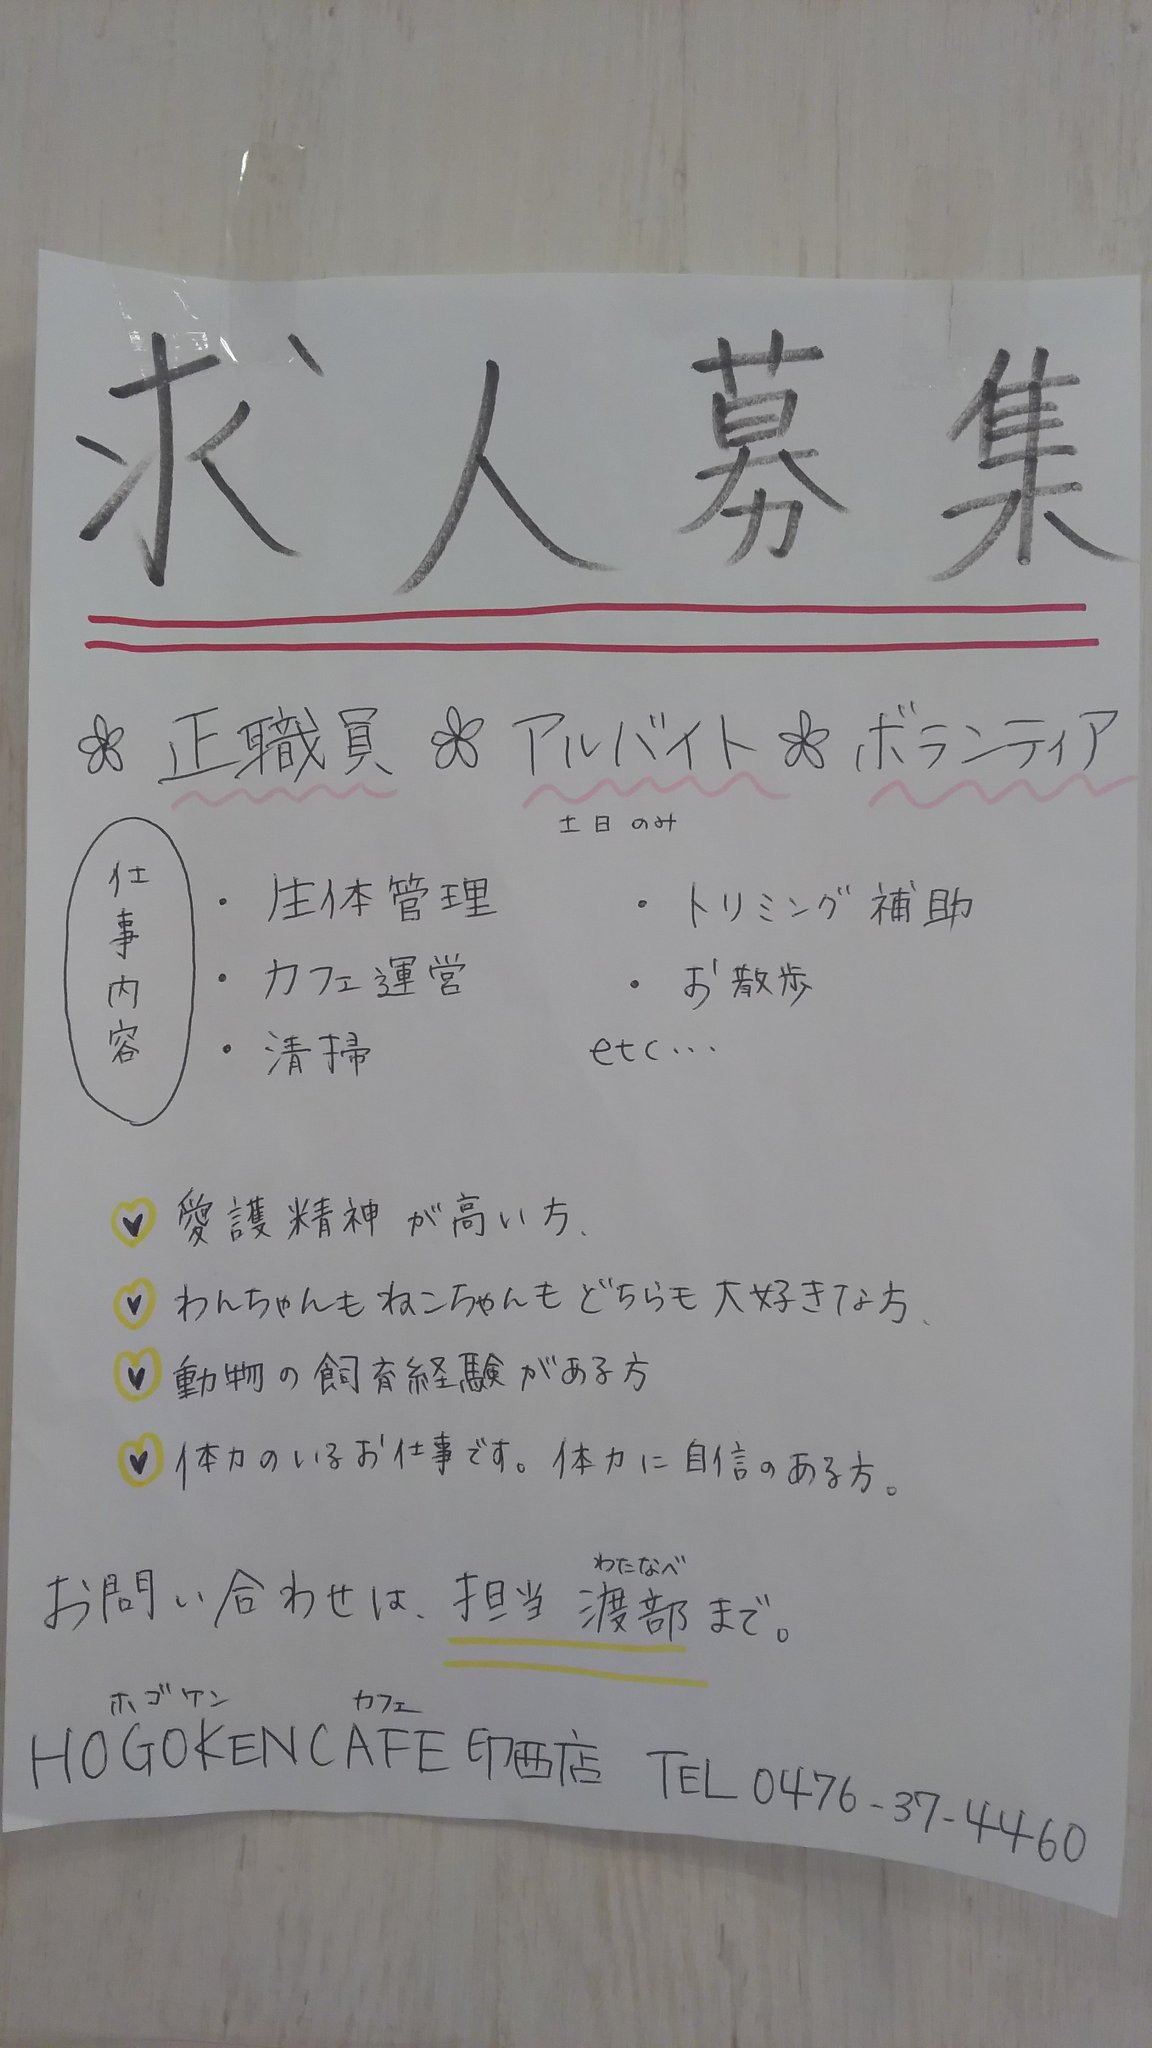 求人募集
正職員 アルバイト ボランティア
土日のみ
仕事内容
・生体管理 ・トリミング補助
・カフェ運営 ・お散歩
・清掃 etc…
愛護精神が高い方、
わんちゃんもねこちゃんもどちらも大好きな方、
動物の飼育経験がある方
体力のいるお仕事です。体力に自信のある方。
わたなべ
お問い合わせは、担当 渡部まで。
ホゴケン カフェ
HOGOKENCAFE 印西店 TEL 0476-37-4460